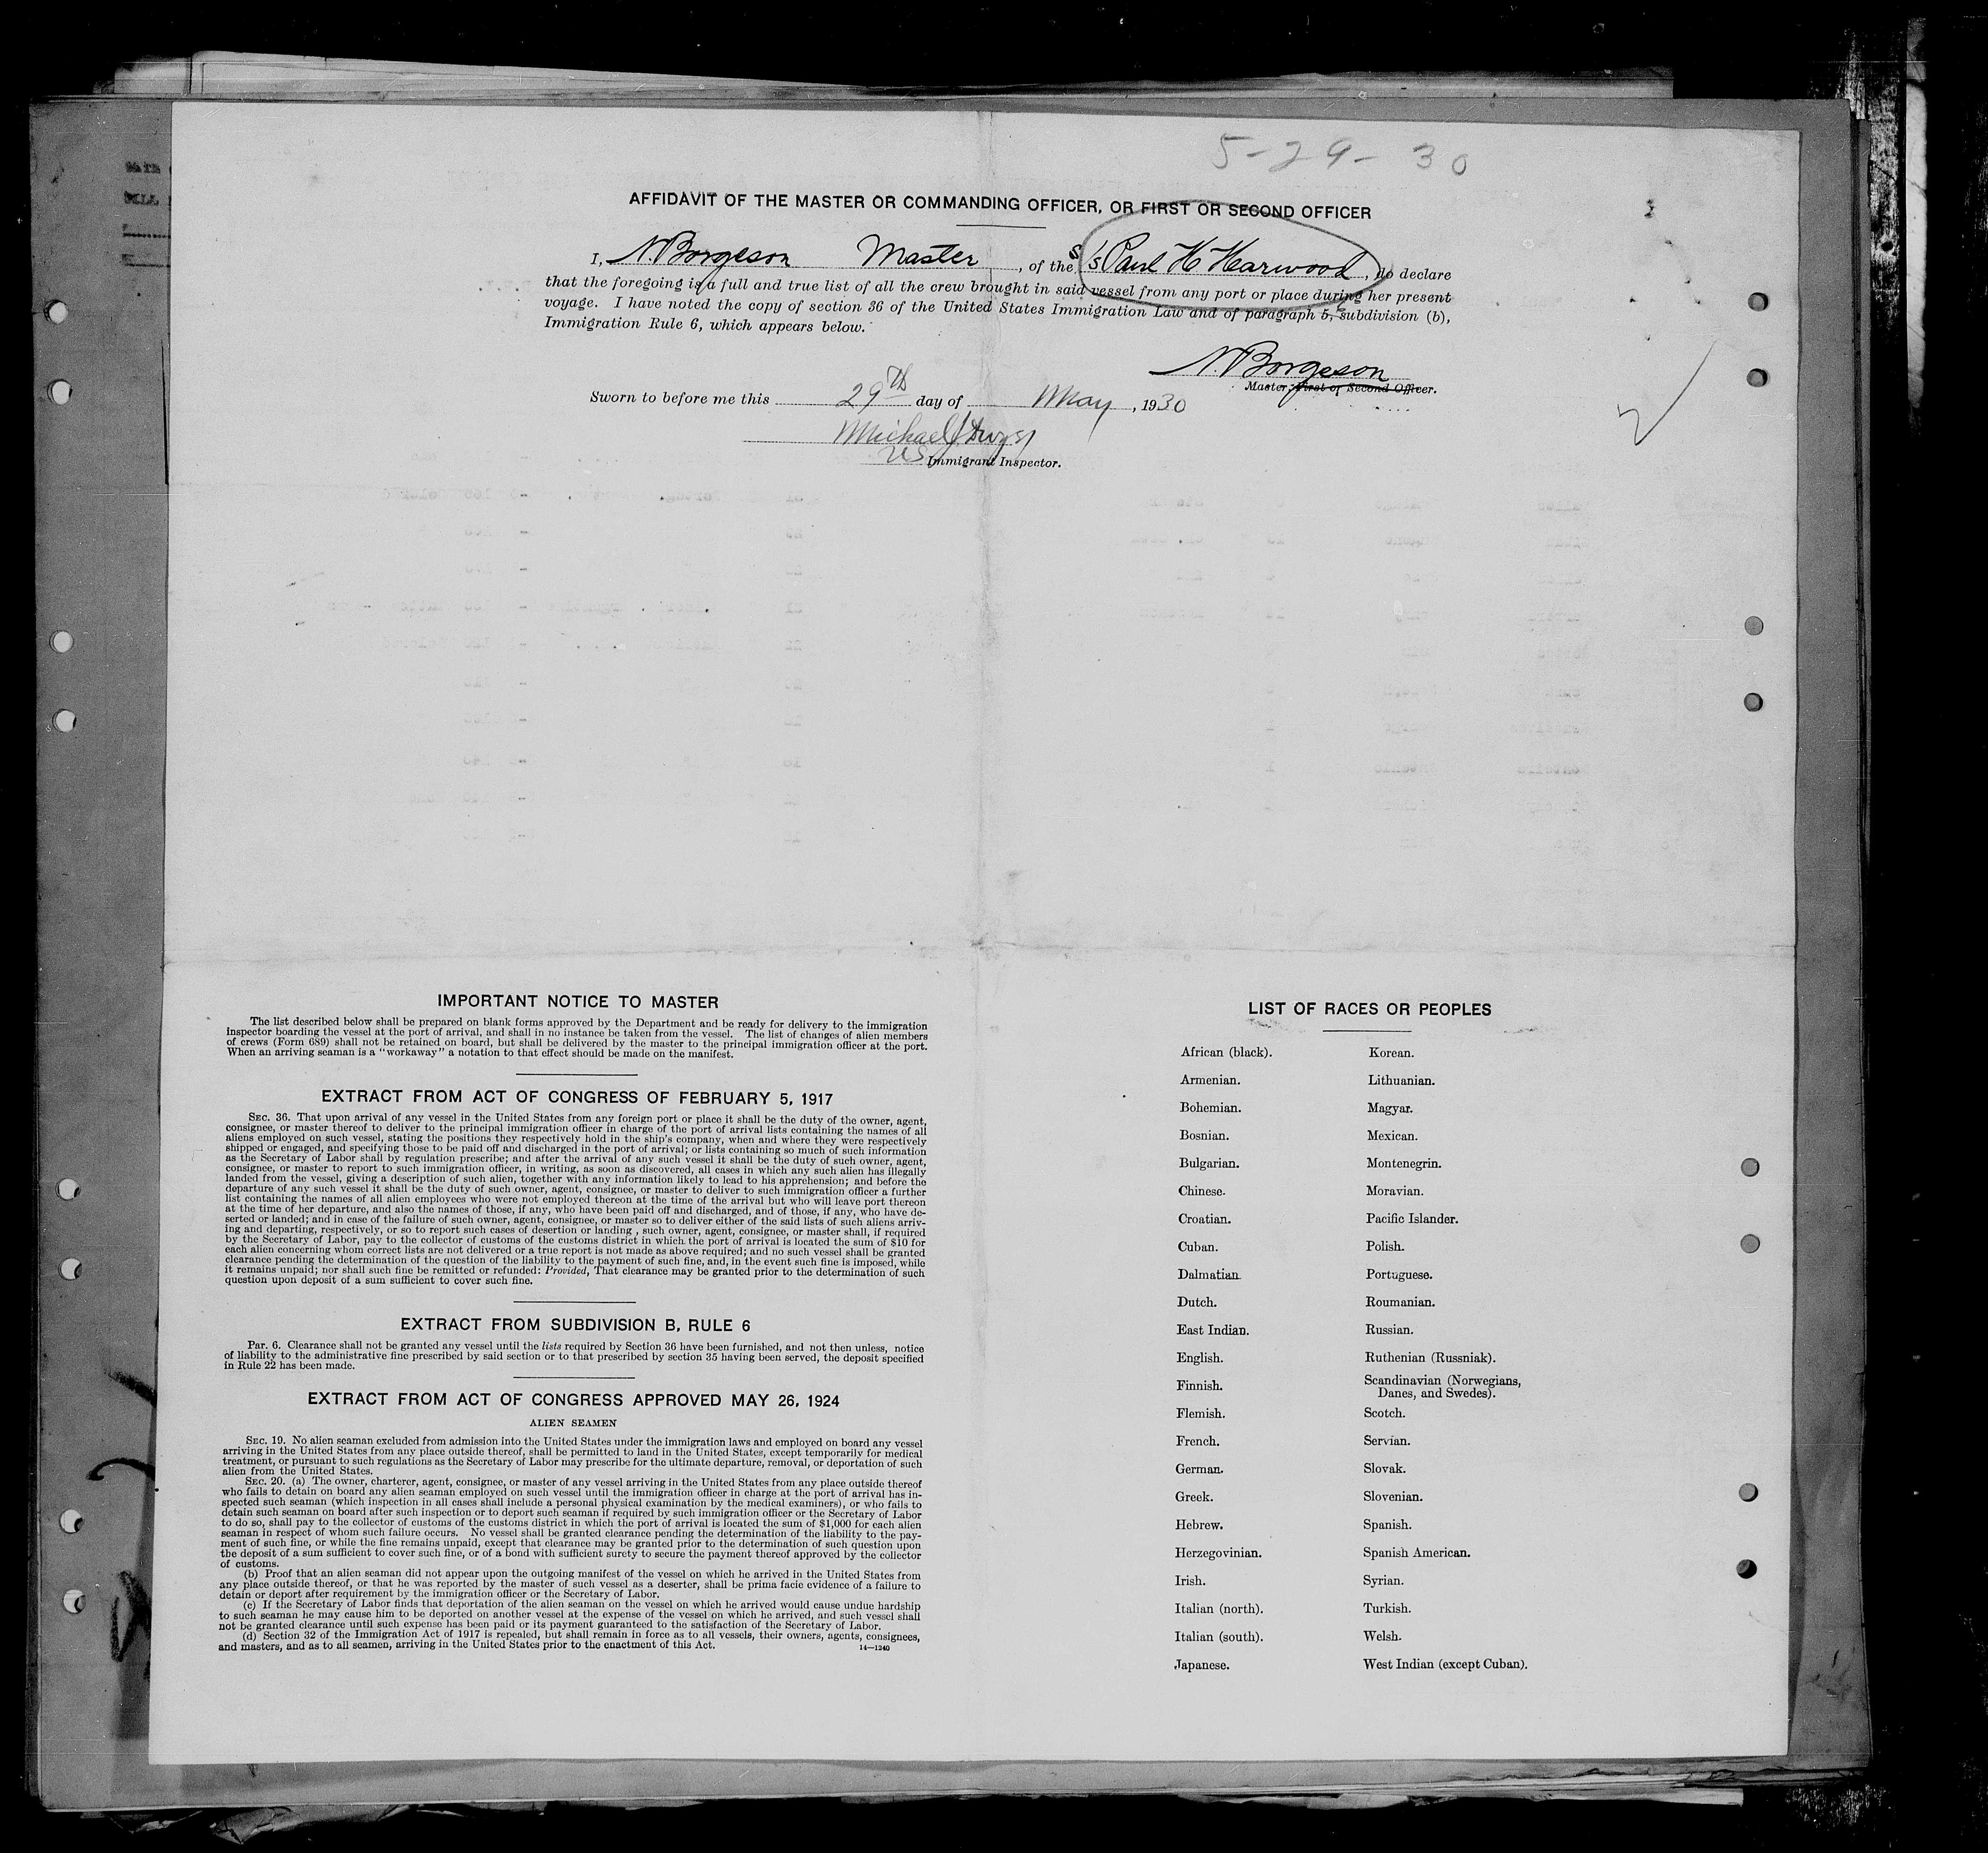 5-29-30
AFFIDAVIT OF THE MASTER OR COMMANDING OFFICER, OR FIRST OR SECOND OFFICER
I, N. Borgeson Master, of the S/S Paul H Harwood, do declare
that the foregoing is a full and true list of all the crew brought in said vessel from any port or place during her present
voyage. I have noted the copy of section 36 of the United States Immigration Law and of paragraph 5, subdivision (b),
Immigration Rule 6, which appears below.
N. Borgeson
Master, First or Second Officer.
Sworn to before me this 29th day of May, 1930
Michael J.
US Immigrant Inspector.
IMPORTANT NOTICE TO MASTER
The list described below shall be prepared on blank forms approved by the Department and be ready for delivery to the immigration
inspector boarding the vessel at the port of arrival, and shall in no instance be taken from the vessel. The list of changes of alien members
of crews (Form 689) shall not be retained on board, but shall be delivered by the master to the principal immigration officer at the port.
When an arriving seaman is a "workaway" a notation to that effect should be made on the manifest.
EXTRACT FROM ACT OF CONGRESS OF FEBRUARY 5, 1917
SEC. 36. That upon arrival of any vessel in the United States from any foreign port or place it shall be the duty of the owner, agent,
consignee, or master thereof to deliver to the principal immigration officer in charge of the port of arrival lists containing the names of all
aliens employed on such vessel, stating the positions they respectively hold in the ship's company, when and where they were respectively
shipped or engaged, and specifying those to be paid off and discharged in the port of arrival; or lists containing so much of such information
as the Secretary of Labor shall by regulation prescribe; and after the arrival of any such vessel it shall be the duty of such owner, agent,
consignee, or master to report to such immigration officer, in writing, as soon as discovered, all cases in which any such alien has illegally
landed from the vessel, giving a description of such alien, together with any information likely to lead to his apprehension; and before the
departure of any such vessel it shall be the duty of such owner, agent, consignee, or master to deliver to such immigration officer a further
list containing the names of all alien employees who were not employed thereon at the time of the arrival but who will leave port thereon
at the time of her departure, and also the names of those, if any, who have been paid off and discharged, and of those, if any, who have de-
serted or landed; and in case of the failure of such owner, agent, consignee, or master so to deliver either of the said lists of such aliens arriv-
ing and departing, respectively, or so to report such cases of desertion or landing , such owner, agent, consignee, or master shall, if required
by the Secretary of Labor, pay to the collector of customs of the customs district in which the port of arrival is located the sum of $10 for
each alien concerning whom correct lists are not delivered or a true report is not made as above required; and no such vessel shall be granted
clearance pending the determination of the question of the liability to the payment of such fine, and, in the event such fine is imposed, while
it remains unpaid; nor shall such fine be remitted or refunded: Provided, That clearance may be granted prior to the determination of such
question upon deposit of a sum sufficient to cover such fine.
EXTRACT FROM SUBDIVISION B, RULE 6
Par. 6. Clearance shall not be granted any vessel until the lists required by Section 36 have been furnished, and not then unless, notice
of liability to the administrative fine prescribed by said section or to that prescribed by section 35 having been served, the deposit specified
in Rule 22 has been made.
EXTRACT FROM ACT OF CONGRESS APPROVED MAY 26, 1924
ALIEN SEAMEN
SEC. 19. No alien seaman excluded from admission into the United States under the immigration laws and employed on board any vessel
arriving in the United States from any place outside thereof, shall be permitted to land in the United States, except temporarily for medical
treatment, or pursuant to such regulations as the Secretary of Labor may prescribe for the ultimate departure, removal, or deportation of such
alien from the United States.
SEC. 20. (a) The owner, charterer, agent, consignee, or master of any vessel arriving in the United States from any place outside thereof
who fails to detain on board any alien seaman employed on such vessel until the immigration officer in charge at the port of arrival has in-
spected such seaman (which inspection in all cases shall include a personal physical examination by the medical examiners), or who fails to
detain such seaman on board after such inspection or to deport such seaman if required by such immigration officer or the Secretary of Labor
to do so, shall pay to the collector of customs of the customs district in which the port of arrival is located the sum of $1,000 for each alien
seaman in respect of whom such failure occurs. No vessel shall be granted clearance pending the determination of the liability to the pay-
ment of such fine, or while the fine remains unpaid, except that clearance may be granted prior to the determination of such question upon
the deposit of a sum sufficient to cover such fine, or of a bond with sufficient surety to secure the payment thereof approved by the collector
of customs.
(b) Proof that an alien seaman did not appear upon the outgoing manifest of the vessel on which he arrived in the United States from
any place outside thereof, or that he was reported by the master of such vessel as a deserter, shall be prima facie evidence of a failure to
detain or deport after requirement by the immigration officer or the Secretary of Labor.
(c) If the Secretary of Labor finds that deportation of the alien seaman on the vessel on which he arrived would cause undue hardship
to such seaman he may cause him to be deported on another vessel at the expense of the vessel on which he arrived, and such vessel shall
not be granted clearance until such expense has been paid or its payment guaranteed to the satisfaction of the Secretary of Labor.
(d) Section 32 of the Immigration Act of 1917 is repealed, but shall remain in force as to all vessels, their owners, agents, consignees,
and masters, and as to all seamen, arriving in the United States prior to the enactment of this Act.
14—1240
LIST OF RACES OR PEOPLES
African (black).
Armenian.
Bohemian.
Bosnian.
Bulgarian.
Chinese.
Croatian.
Cuban.
Dalmatian.
Dutch.
East Indian.
English.
Finnish.
Flemish.
French.
German.
Greek.
Hebrew.
Herzegovinian.
Irish.
Italian (north).
Italian (south).
Japanese.
Korean.
Lithuanian.
Magyar.
Mexican.
Montenegrin.
Moravian.
Pacific Islander.
Polish.
Portuguese.
Roumanian.
Russian.
Ruthenian (Russniak).
Scandinavian (Norwegians,
Danes, and Swedes).
Scotch.
Servian.
Slovak.
Slovenian.
Spanish.
Spanish American.
Syrian.
Turkish.
Welsh.
West Indian (except Cuban).